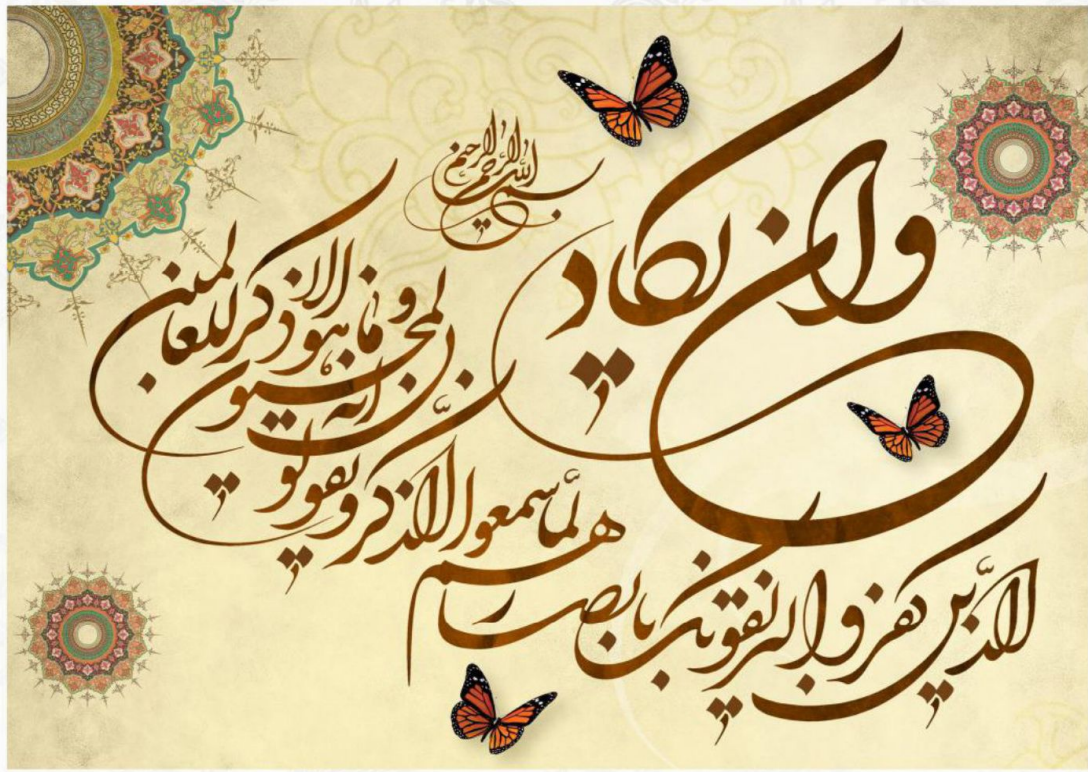 بسم الله الرحمن الرحیم
وان یکاد
الذین کفروا لیزلقونک بابصارهم
لما سمعوا الذکر و یقولون
انه لمجنون
و ما هو الا ذکر للعالمین